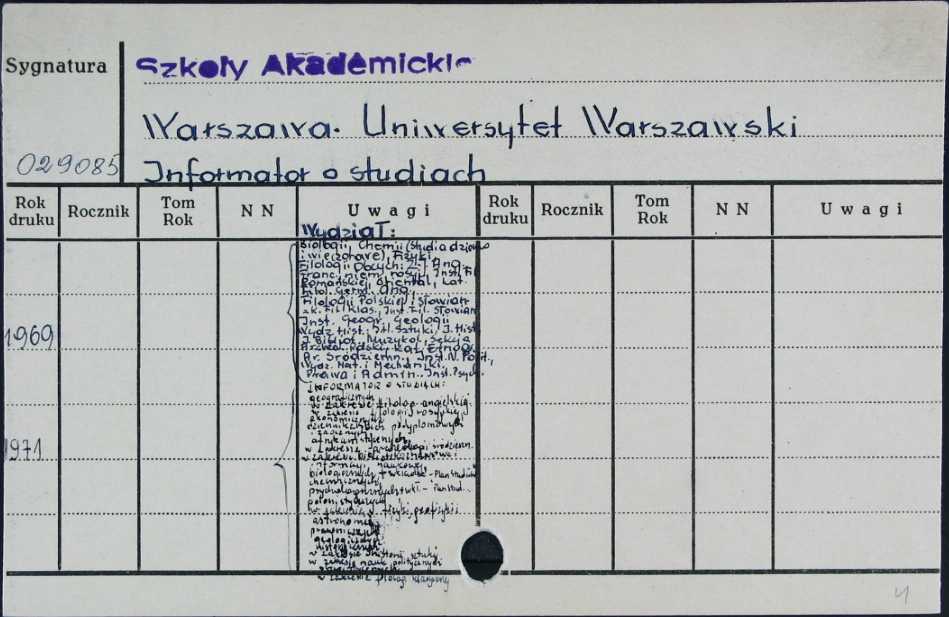 Sygnatura
Szkoły Akademickie
Warszawa. Uniwersytet Warszawski
029085
Informator o studiach
Rok druku Rocznik Tom Rok N N Uwagi Rok druku Rocznik Tom Rok N N Uwagi
Wydział:
Biologii, Chemii (studia dzienne
i wieczorowe), Fizyki
Filologii Obcych:
Franc. niem. rosyj. Inst. Fil
Romańskiej oriental, Kat.
Filol. Germ. Ang.
Filologii Polskiej i słowian
Inst. Fil. Słowian
Inst. Geogr. Geologii
Wydz. Hist.: Sztuki, I. Hist.
1969
Muzykol. Sekcja
Kat. Etnog.
Ar. Śródziemn., Inst. N. Polit.,
Wydz. Mat. i Mechaniki
Prawa i Admin. Inst. Psych.
INFORMATOR O STUDIACH:
geograficznych
w zakresie filologii angielskiej
w zakresie filologii rosyjskiej
ekonomicznych
podyplomowych
i zaocznych
afrykanistycznych
1971
w zakresie archeologii śródziem.
w zakresie bibliotekoznawstwa i
informacji naukowej
biologicznych + wkładka - Plan studiów
chemicznych
psychologicznych + wkł. - Plan stud.
polonistycznych
fizyki, geofizyki
astronomii
prawniczych
geologicznych
historycznych
w zakresie historii sztuki
w zakresie nauk politycznych
w zakresie filologii klasycznej
4